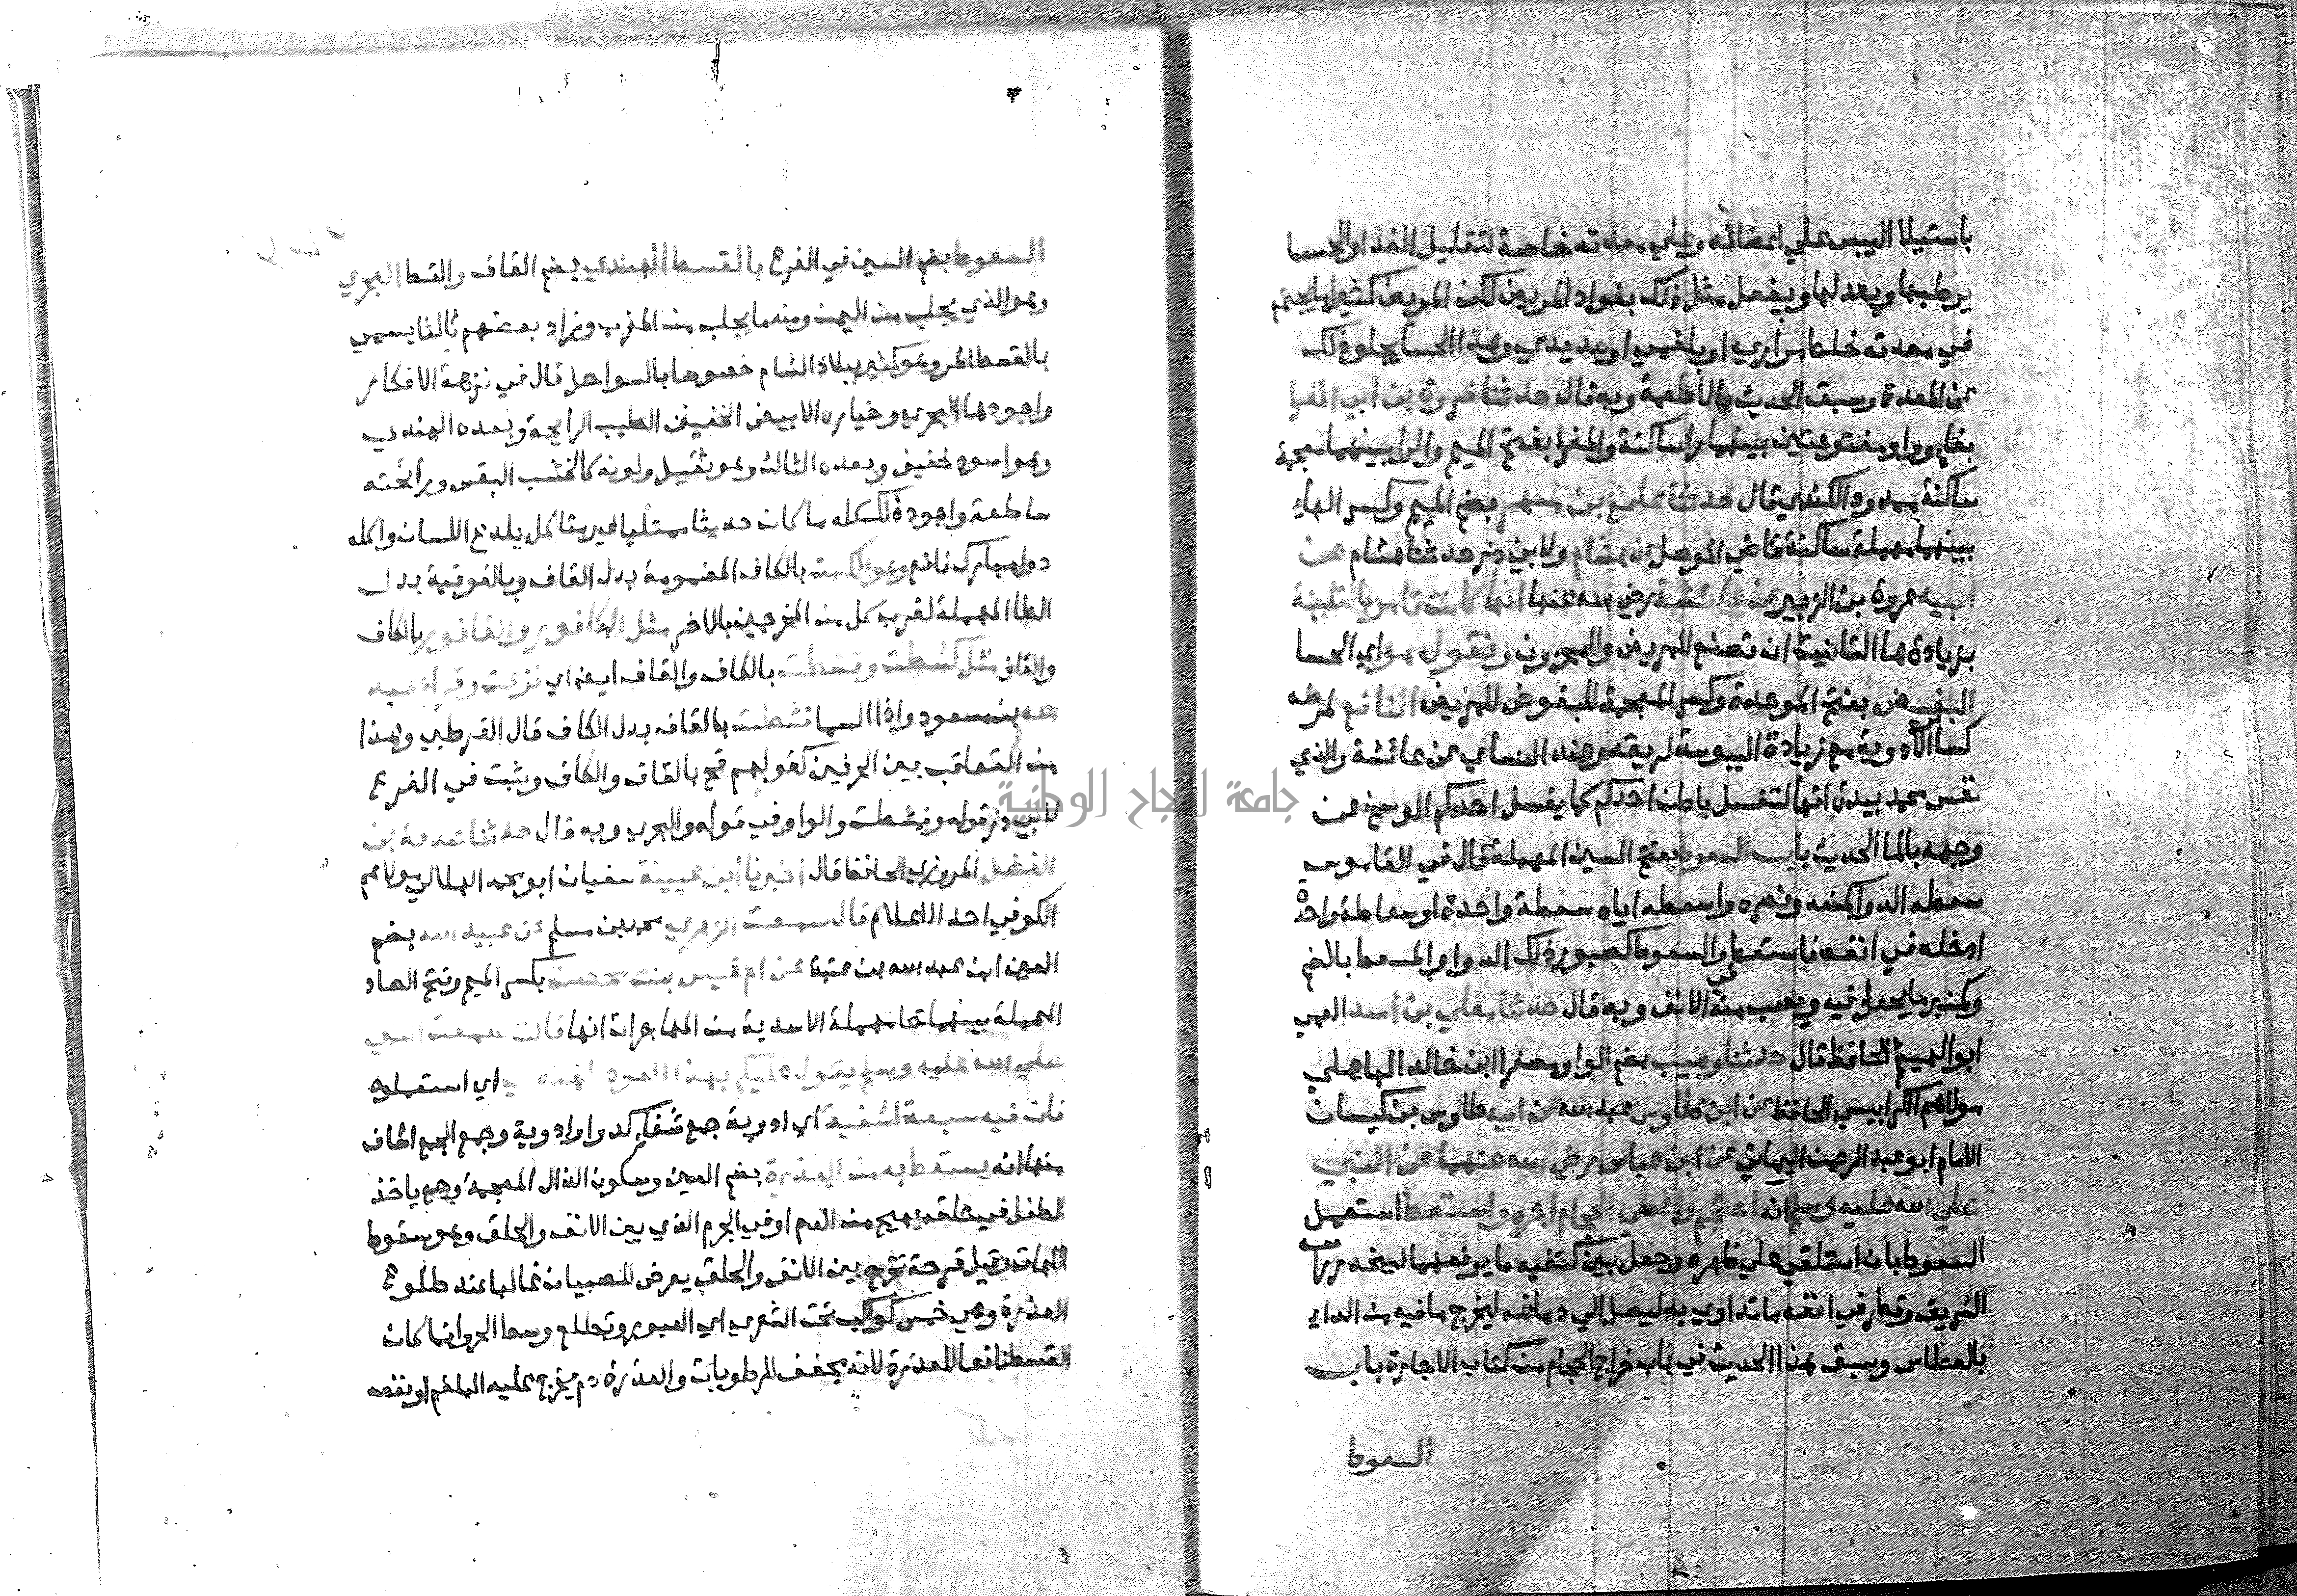 باستيلا اليبس علي اعضائه وعلي معدته خاصة لتقليل الغذا والحسا
يرطبها ويعدلها ويفعل مثل ذلك بفواد المريض لكن المريض كثيرا ما يجتمع
في معدته خلط مراري او بلغمي او صديدي وهذا الحسا يجلو ذلك
عن المعدة وسبق الحديث بالاطعمة وبه قال حدثنا فروة بن ابي المغرا
بفاء وواو مفتوحتين بينهما را ساكنة والمغرا بفتح الميم والرا بينهما معجمة
ساكنة ممدود الكندي قال حدثنا علي بن مسهر بضم الميم وكسر الهاء
بينهما مهملة ساكنة قاضي الموصل عن هشام ولابي ذر حدثنا هشام عن
ابيه عروة بن الزبير عن عائشة رضي الله عنها انها كانت تامر بالتلبينة
بزيادة ها التانيث ان تصنع للمريض والمحزون وتقول هو اي الحسا
البغيض بفتح الموحدة وكسر المعجمة المبغوض للمريض النافع لمرضه
كسائر الادوية مع زيادة اليبوسة لريقه وعند النساي عن عائشة والذي
نفس محمد بيده انها لتغسل باطن احدكم كما يغسل احدكم الوسخ عن
وجهه بالما الحديث باب السعوط بفتح السين المهملة قال في القاموس
سعطه الدوا كمنعه ونصره واسعطه اياه سعطة واحدة او سعاطة واحدة
ادخله في انفه فاستعط والسعوط كصبور ذلك الدوا والمسعط بالضم
وكمنبر ما يجعل فيه ويصب منه في الانف وبه قال حدثنا معلي بن اسد العمي
ابو الهيثم الحافظ قال حدثنا وهيب بضم الواو مصغرا ابن خالد الباهلي
مولاهم الكرابيسي الحافظ عن ابن طاوس عبد الله عن ابيه طاوس بن كيسان
الامام ابو عبد الرحمن اليماني عن ابن عباس رضي الله عنهما عن النبي
صلي الله عليه وسلم انه احتجم واعطي الحجام اجره واستعط استعمل
السعوط بان استلقي علي ظهره وجعل بين كتفيه ما يرفعهما لينحدر راسه
الشريف وقطر في انفه ما تداوي به ليصل الي دماغه ليخرج ما فيه من الداي
بالعطاس وسبق هذا الحديث في باب خراج الحجام من كتاب الاجارة باب
السعوط
السعوط بضم السين في الفرع بالقسط الهندي بضم القاف والقسط البحري
وهو الذي يجلب من اليمن ومنه ما يجلب من المغرب وزاد بعضهم ثالثا يسمي
بالقسط المر وهو كثير ببلاد الشام خصوصا بالسواحل قال في نزهة الافكار
واجودها البحري وخياره الابيض الخفيف الطيب الرايحة وبعده الهندي
وهو اسود خفيف وبعده الثالث وهو ثقيل ولونه كالخشب البقس ورائحته
ساطعة واجود ذلك كله ما كان حديثا ممتليا غير متاكل يلدغ اللسان واكله
دوا مبارك نافع وهو الكست بالكاف المضمومة بدل القاف وبالفوقية بدل
الطا المهملة لقرب كل من المخرجين بالاخر مثل الكافور والقافور بالكاف
والقاف مثل كشطت وقشطت بالكاف والقاف ايضا اي نزعت وقرا عبد
الله بن مسعود واذا السما قشطت بالقاف بدل الكاف قال القرطبي وهذا
من التعاقب بين الحرفين كقولهم قح بالقاف والكاف ويثبت في الفرع
لابي ذر قوله وقشطت والواو في قوله والبحري وبه قال حدثنا صدقة بن
الفضل المروزي الحافظ قال اخبرنا ابن عيينة سفيان ابو محمد الهلالي مولاهم
الكوفي احد الاعلام قال سمعت الزهري محمد بن مسلم عن عبيد الله بضم
العين ابن عبد الله بن عتبة عن ام قيس بنت محصن بكسر الميم وفتح الصاد
المهملة بينهما حا مهملة الاسدية من المهاجرات انها قالت سمعت النبي
صلي الله عليه وسلم يقول عليكم بهذا العود الهندي اي استعملوه
فان فيه سبعة اشفية اي ادوية جمع شفا كدوا وادوية وجمع الجمع اشاف
منها انه يستعط به من العذرة بضم العين وسكون الذال المعجمة وجع ياخذ
الطفل في حلقه يهيج من الدم او في الخرم الذي بين الانف والحلق وهو سقوط
اللهات وقيل قرحة تخرج بين الانف والحلق يعرض للصبيان غالبا عند طلوع
العذرة وهي خمس كواكب تحت الشعري اي العبور وتطلع وسط الحر وانما كان
القسط نافعا للعذرة لانه يجفف الرطوبات والعذرة دم يخرج عليه البلغم او نفعه
جامعة النجاح الوطنية